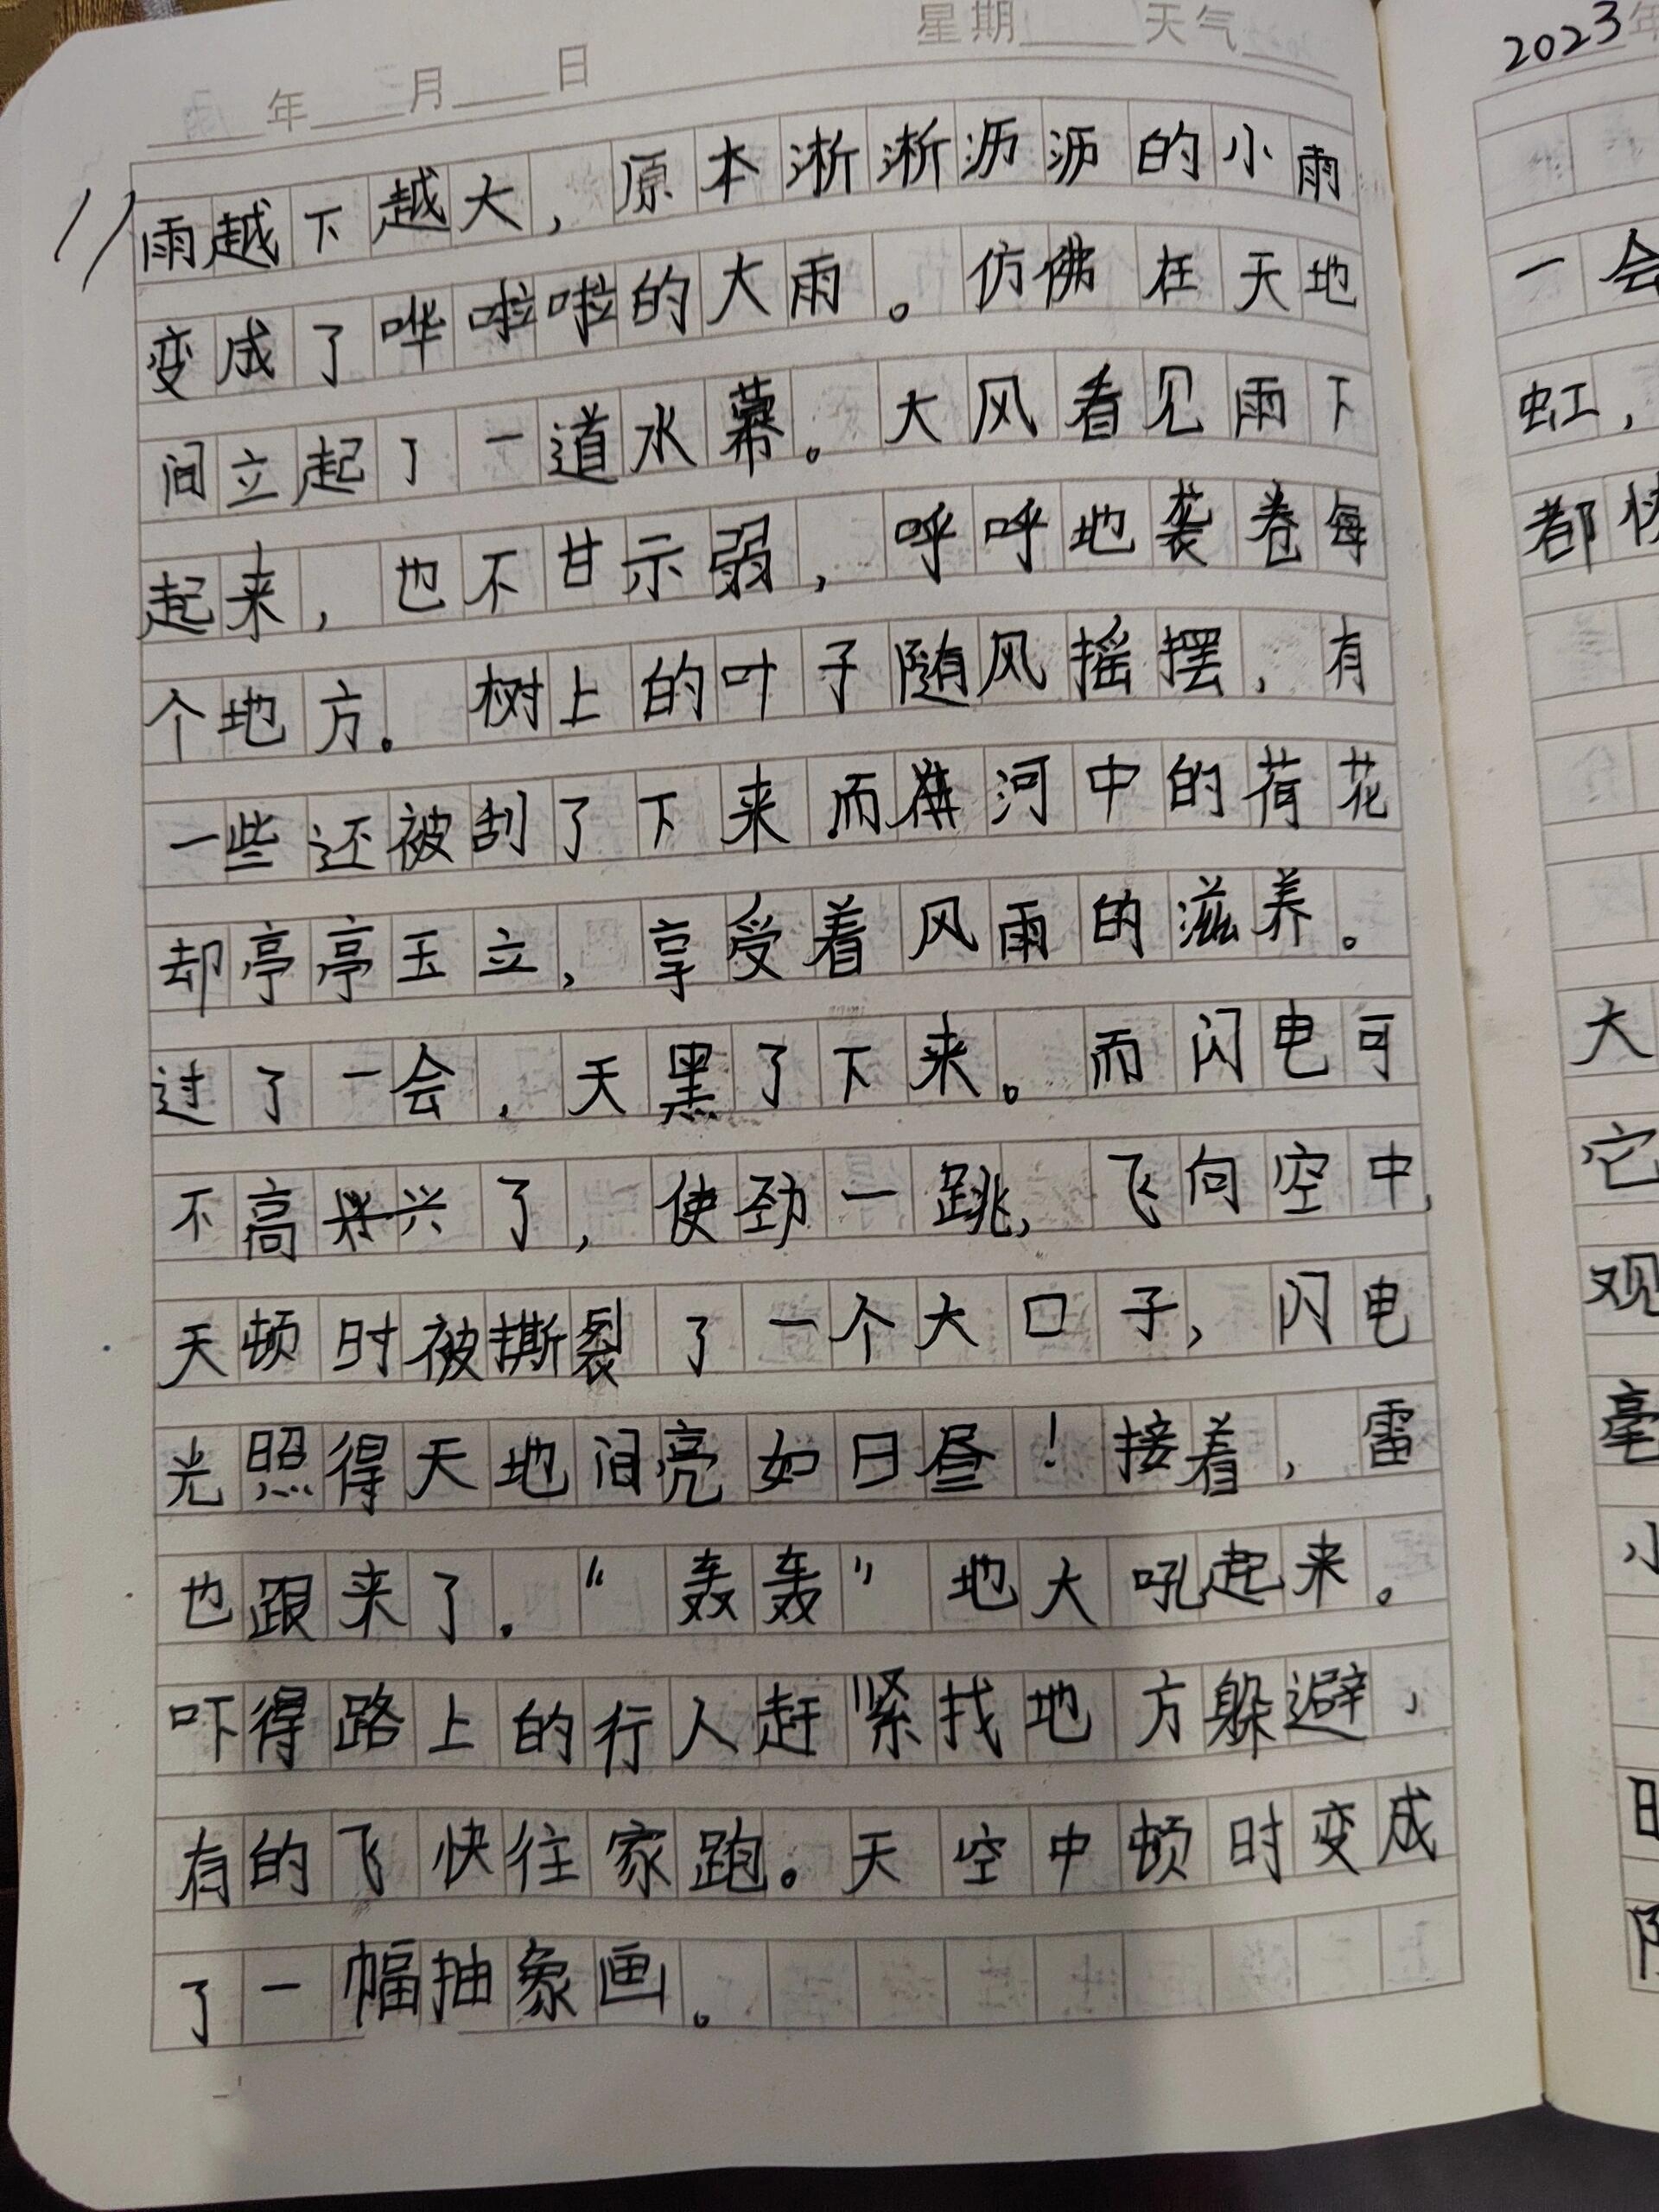 星期 天气
年 月 日
雨越下越大，原本淅淅沥沥的小雨
变成了哗啦啦的大雨。仿佛在天地
间立起了一道水幕。大风看见雨下
起来，也不甘示弱，呼呼地袭卷每
个地方。树上的叶子随风摇摆，有
一些还被刮了下来而河中的荷花
却亭亭玉立，享受着风雨的滋养。
过了一会，天黑了下来。而闪电可
不高兴了，使劲一跳，飞向空中，
天顿时被撕裂了一个大口子，闪电
光照得天地间亮如日昼！接着，雷
也跟来了。“轰轰”地大吼起来。
吓得路上的行人赶紧找地方躲避，
有的飞快往家跑。天空中顿时变成
了一幅抽象画。
2023年
一会
虹，
都快
大
它
观
毫
小